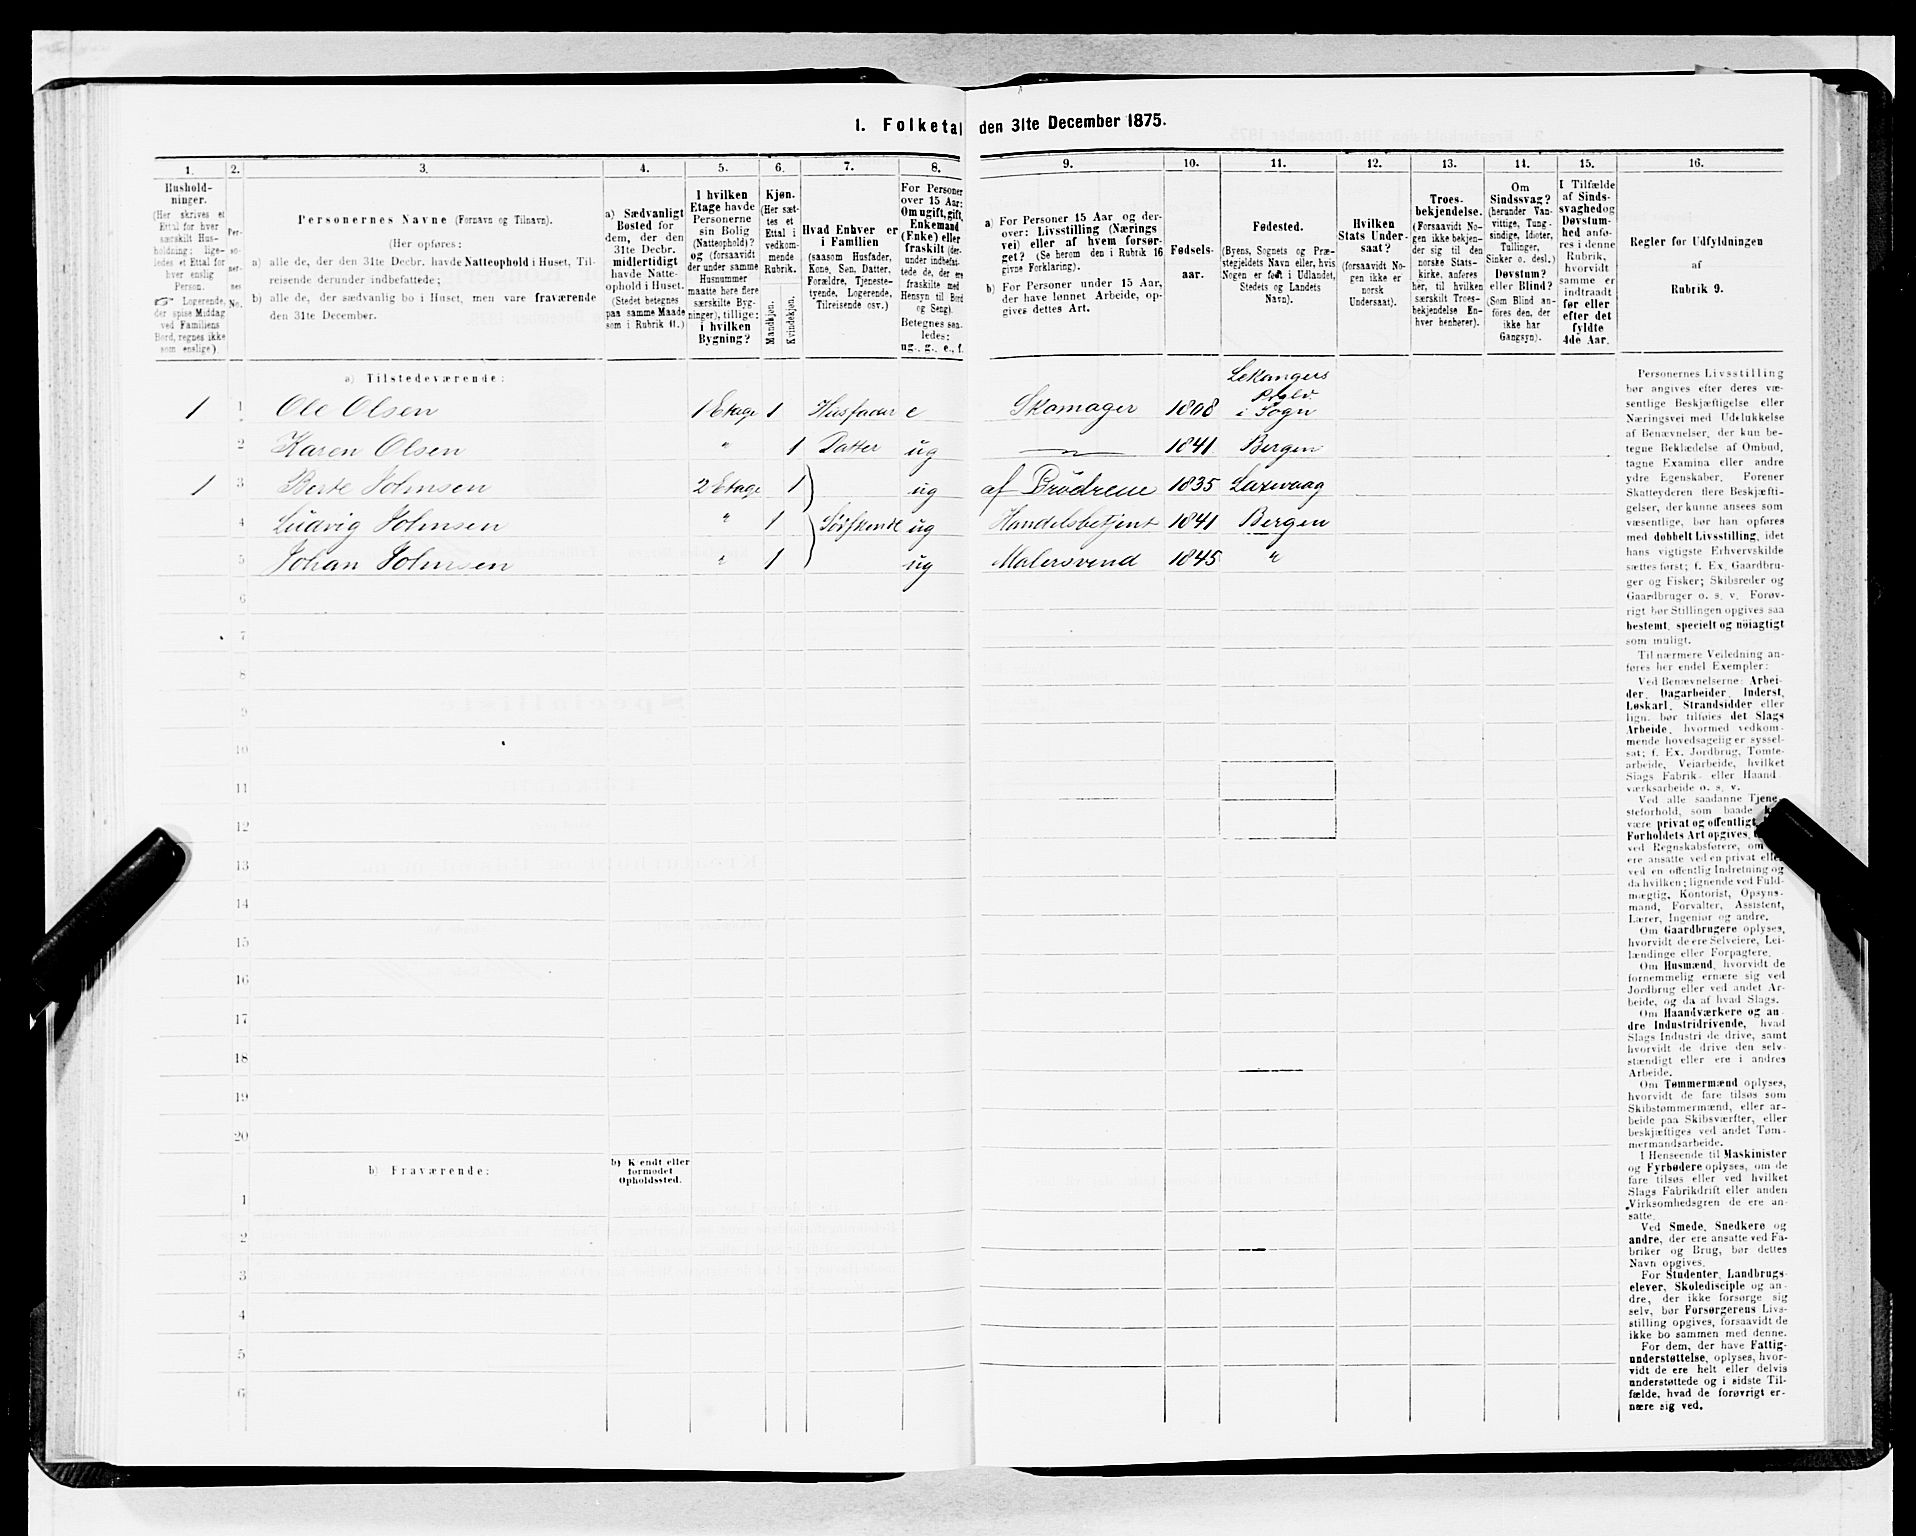 I. Folketal den 31te December 1875.
1. 2. 3. 4. 5. 6. 7. 8. 9. 10. 11. 12. 13. 14. 15. 16.
Hushold-
ninger.
(Her skrives et
Ettal for hver
særskilt Hus-
holdning; lige-
ledes et Ettal for
hver enslig
Person.
☞ Logerende,
der spise Middag
ved Familiens
Bord, regnes ikke
som enslige).
Per-
so-
ner-
nes
No.
Personernes Navne (Fornavn og Tilnavn).
(Her opføres:
a) alle de, der den 31te Decbr. havde Natteophold i Huset, Til-
reisende derunder indbefattede;
b) alle de, der sædvanlig bo i Huset, men vare fraværende
den 31te December.
a) Sædvanligt
Bosted for
dem, der den
31te Decbr.
midlertidigt
havde Natte-
ophold i Huset.
(Stedet betegnes
paa samme Maade
som i Rubrik 11.)
I hvilken
Etage havde
Personerne
sin Bolig
(Natteophold)?
og (forsaavidt
der under samme
Husnummer
maatte høre flere
særskilte Byg-
ninger), tillige:
i hvilken
Bygning?
Kjøn.
(Her sæt-
tes et
Ettal i
vedkom-
mende
Rubrik.
Mandkjøn.
Kvindekjøn.
Hvad Enhver er
i Familien
(saasom Husfader,
Kone, Søn, Datter,
Forældre, Tjeneste-
tyende, Logerende,
Tilreisende osv.)
For Personer
over 15 Aar:
Om ugift, gift,
Enkemand
(Enke) eller
fraskilt (der-
under indbefat-
tede de, der ere
fraskilte med
Hensyn til Bord
og Seng).
Betegnes saa-
ledes:
ug., g., e., f.
a) For Personer 15 Aar og der-
over: Livsstilling (Nærings
vei) eller af hvem forsør-
get? (Se herom den i Rubrik 16
givne Forklaring).
b) For Personer under 15 Aar,
der have lønnet Arbeide, op-
gives dettes Art.
Fødsels-
aar.
Fødested.
(Byens, Sognets og Præ-
stegjeldets Navn eller, hvis
Nogen er født i Udlandet,
Stedets og Landets
Navn).
Hvilken
Stats Under-
saat?
(forsaavidt No-
gen ikke er
norsk
Undersaat).
Troes-
bekjendelse.
(Forsaavidt No-
gen ikke bekjen-
der sig til den
norske Stats-
kirke, anføres
her, til hvilken
særskilt Troes-
bekjendelse En-
hver henhører).
Om
Sindssvag?
(herunder Van-
vittige, Tung-
sindige, Idioter,
Tullinger,
Sinker o. desl.)
Døvstum?
eller Blind?
(Som Blind an-
føres den, der
ikke har
Gangsyn).
I Tilfælde
af Sinds-
svaghed og
Døvstum-
hed anfø-
res i denne
Rubrik,
hvorvidt
samme er
indtraadt
før eller
efter det
fyldte
4de Aar.
Regler for Udfyldningen
af
Rubrik 9.
a) Tilstedeværende:
Lekangers
1 1 Ole Olsen 1 Etage 1 Husfader e Skomager 1808 Prglv i Sogn
2 Karen Olsen " 1 Datter ug 1841 Bergen
1 3 Berte Johnsen 2 Etage 1 ug af Brödrene 1835 Laxevaag
4 Ludvig Johnsen " 1 Söskende ug Handelsbetjent 1841 Bergen
5 Johan Johnsen " 1 ug Malersvend 1845 "
6
7
8
9
10
11
12
13
14
15
16
17
18
19
20
b) Fraværende:
b) Kjendt eller
formodet
Opholdssted.
1
2
3
4
5
6
Personernes Livsstilling
bør angives efter deres væ-
sentlige Beskjæftigelse eller
Næringsvei med Udelukkelse
af Benævnelser, der kun be-
tegne Beklædelse af Ombud,
tagne Examina eller andre
ydre Egenskaber. Forener
Skatteyderen flere Beskjæfti-
gelser, der kunne ansees som
væsentlige, bør han opføres
med dobbelt Livsstilling, idet
hans vigtigste Erhvervskilde
sættes først; f. Ex. Gaardbru-
ger og Fisker; Skibsreder og
Gaardbruger o. s. v. Forøv-
rigt bør Stillingen opgives saa
bestemt, specielt og nöiagtigt
som muligt.
Til nærmere Veiledning an-
føres her endel Exempler:
Ved Benævnelserne: Arbei-
der, Dagarbeider, Inderst,
Løskarl, Strandsidder eller
lign. bør tilføies det Slags
Arbeide, hvormed vedkom-
mende hovedsagelig er syssel-
sat; f. Ex. Jordbrug, Tomte-
arbeide, Veiarbeide, hvilket
Slags Fabrik- eller Haand-
værksarbeide o. s. v.
Ved alle saadanne Tjene-
steforhold, som baade
være privat og offentligt,
Forholdets Art opgives,
ved Regnskabsførere, om
ere ansatte ved en privat eller
ved en offentlig Indretning og
da hvilken; lignende ved Fuld-
mægtig, Kontorist, Opsyns-
mand, Forvalter, Assistent,
Lærer, Ingeniør og andre.
Om Gaardbrugere oplyses,
hvorvidt de ere Selveiere, Lei-
lændinge eller Forpagtere.
Om Husmænd, hvorvidt de
fornemmelig ernære sig ved
Jordbrug eller ved andet Ar-
beide, og da af hvad Slags.
Om Haandværkere og an-
dre Industridrivende, hvad
Slags Industri de drive, samt
hvorvidt de drive den selv-
stændigt eller ere i andres
Arbeide.
Om Tømmermænd oplyses,
hvorvidt de fare tilsøs som
Skibstømmermænd, eller ar-
beide paa Skibsværfter, eller
beskjæftiges ved andet Tøm-
mermandsarbeide.
I Henseende til Maskinister
og Fyrbødere oplyses, om de
fare tilsøs eller ved hvilket
Slags Fabrikdrift eller anden
Virksomhedsgren de ere an-
satte.
Ved Smede, Snedkere og
andre, der ere ansatte ved Fa-
briker og Brug, bør dettes
Navn opgives.
For Studenter, Landbrugs-
elever, Skoledisciple og an-
dre, der ikke forsørge sig
selv, bør Forsørgerens Livs-
stilling opgives, forsaavidt de
ikke bo sammen med denne.
For dem, der have Fattig-
understøttelse, oplyses, hvor-
vidt de ere helt eller delvis
understøttede og i sidste Til-
fælde, hvad de forøvrigt er-
nære sig ved.